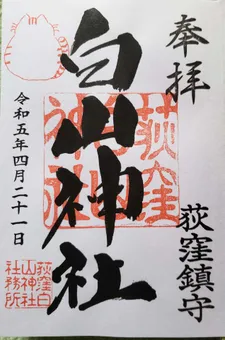 奉拝
荻窪鎮守
白山神社
令和五年四月二十一日
荻窪白
山神社
社務所